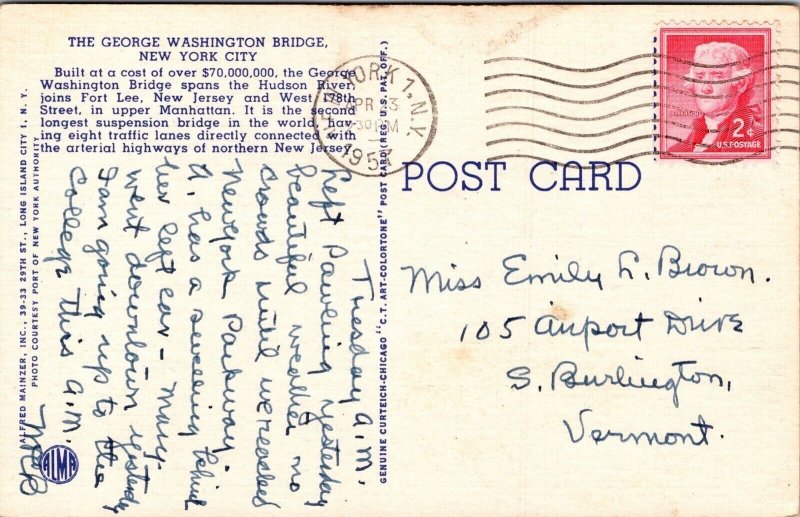 THE GEORGE WASHINGTON BRIDGE,
NEW YORK CITY
Built at a cost of over $70,000,000, the George
Washington Bridge spans the Hudson River,
joins Fort Lee, New Jersey and West 178th
Street, in upper Manhattan. It is the second
longest suspension bridge in the world, hav-
ing eight traffic lanes directly connected with
the arterial highways of northern New Jersey.
YORK 1, N.Y.
APR 13
30 PM
195
2¢
U.S. POSTAGE
POST CARD
Tuesday A.M.
Left Pawling yesterday
beautiful weather no
crowds until we reached
New York Parkway.
A. has a swelling behind
her left ear - Mary
went downtown yesterday
I am going up to the
College this A.M.
Miss Emily L. Brown.
105 Airport Drive
S. Burlington,
Vermont.
ALFRED MAINZER, INC., 39-33 29TH ST., LONG ISLAND CITY 1, N. Y.
PHOTO COURTESY PORT OF NEW YORK AUTHORITY
AIMA
GENUINE CURTEICH-CHICAGO "C.T. ART-COLORTONE" POST CARD (REG. U.S. PAT. OFF.)